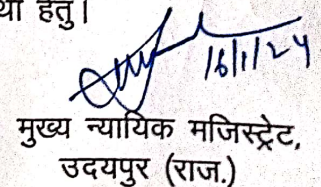 था हेतु।
16/1/24
मुख्य न्यायिक मजिस्ट्रेट,
उदयपुर (राज.)